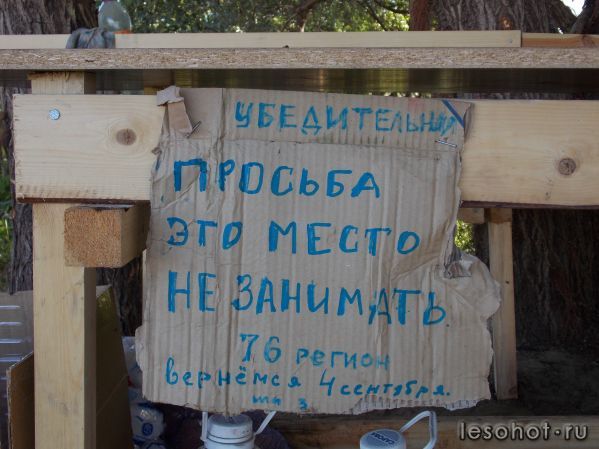 УБЕДИТЕЛЬНАЯ
ПРОСЬБА
ЭТО МЕСТО
НЕ ЗАНИМАТЬ.
76 регион
вернёмся 4 сентября.
lesohot.ru